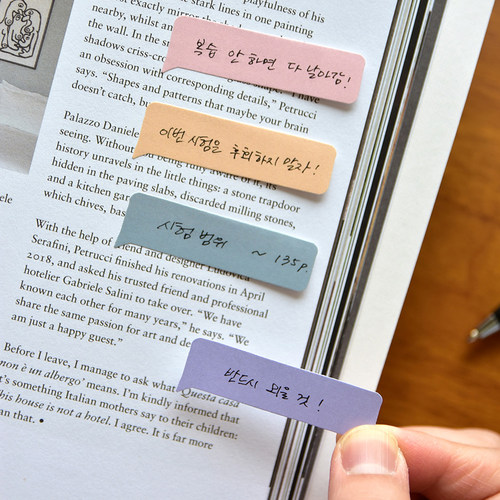 playfulness of his
stark lines in one painting
nearby, whilst an
exactly mirror the
복습 안 하면 다 날아감!
the wall. In the s
shadows criss-cr
an obsession with corresponding details,"
says. "Shapes and patterns that maybe your brain
doesn't catch, bu
Petrucci
이번 시험을 후회하지 말자!
Palazzo Daniele
seeing. Without being fully aware of it, its
history unravels in the little things: a stone trapdoor
hidden in the paving slabs, discarded milling stones,
and a kitchen gar
which chives, bas
시험 범위 ~ 135p.
With the help of friend and designer Ludovica
Serafini, Petrucci finished his renovations in April
2018, and asked his trusted friend and professional
hotelier Gabriele Salini to take over. "We have
known each other for many years," he says. "We
share the same passion for art and de
am just a happy guest."
반드시 외울 것!
Before I leave, I manage to ask what Questa casa
non è un albergo' means. I'm kindly informed that
t's something Italian mothers say to their children:
his house is not a hotel. I agree. It is far more
an that.